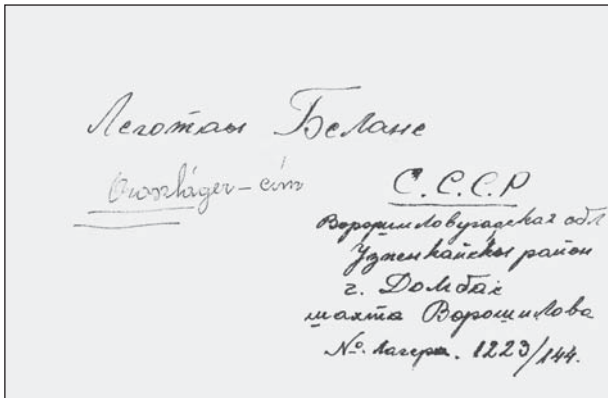 Леготаи Беλане
Oroszláger-cím
С.С.С.Р
Ворошиловуградская обл
район
г. Домбас
шахта Ворошилова
№ лагера. 1223/144.